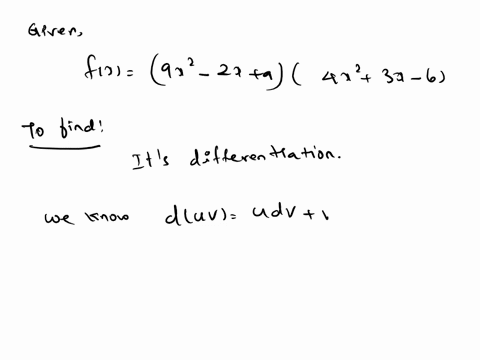 Given,
f(x) = (9x² - 2x + 9) ( 4x² + 3x - 6)
To find!
It's differentiation.
we know d(uv) = udv +